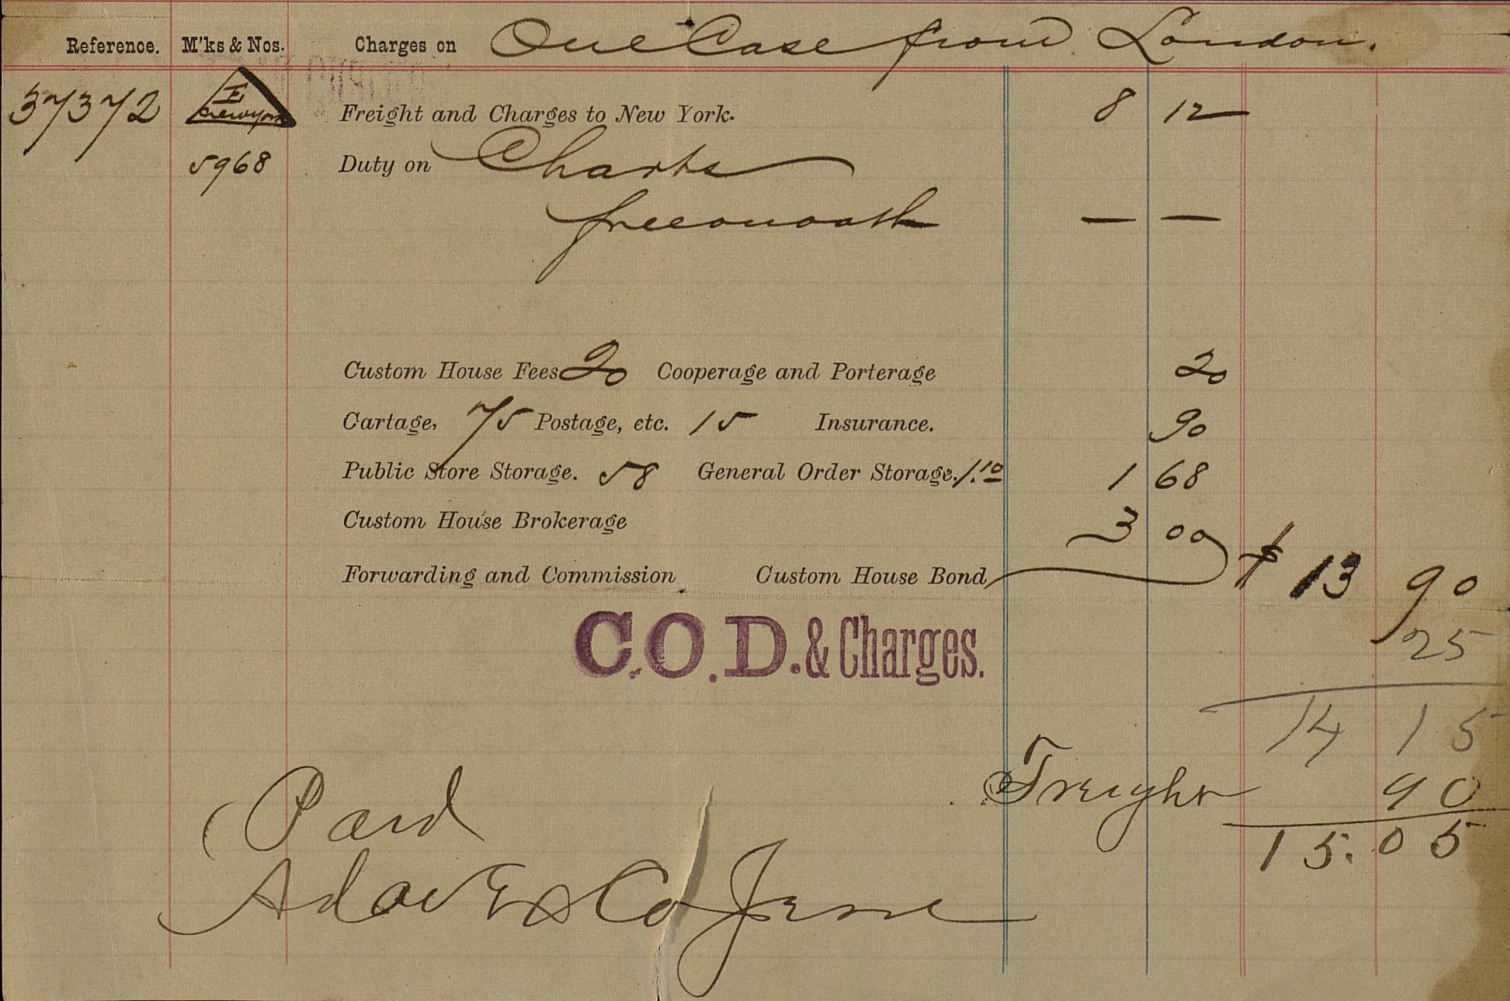 Reference. M'ks & Nos. Charges on One Case from London.
37372 I New York Freight and Charges to New York. 8 12
5968 Duty on Charts
free on oath — —
Custom House Fees 20 Cooperage and Porterage 20
Cartage, 75 Postage, etc. 15 Insurance. 90
Public Store Storage. 58 General Order Storage. 1.10 1 68
Custom House Brokerage 3 00
Forwarding and Commission Custom House Bond $ 13 90
25
C.O.D. & Charges.
14 15
Freight 90
15.05
Paid
Co